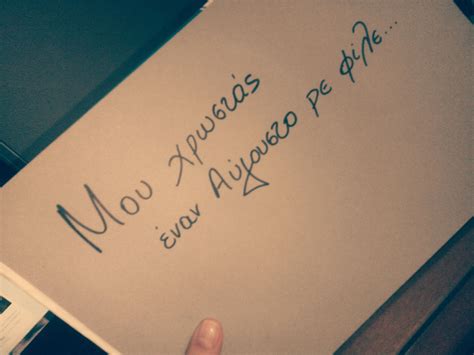 Μου χρωστάς
έναν Αύγουστο ρε φίλε...